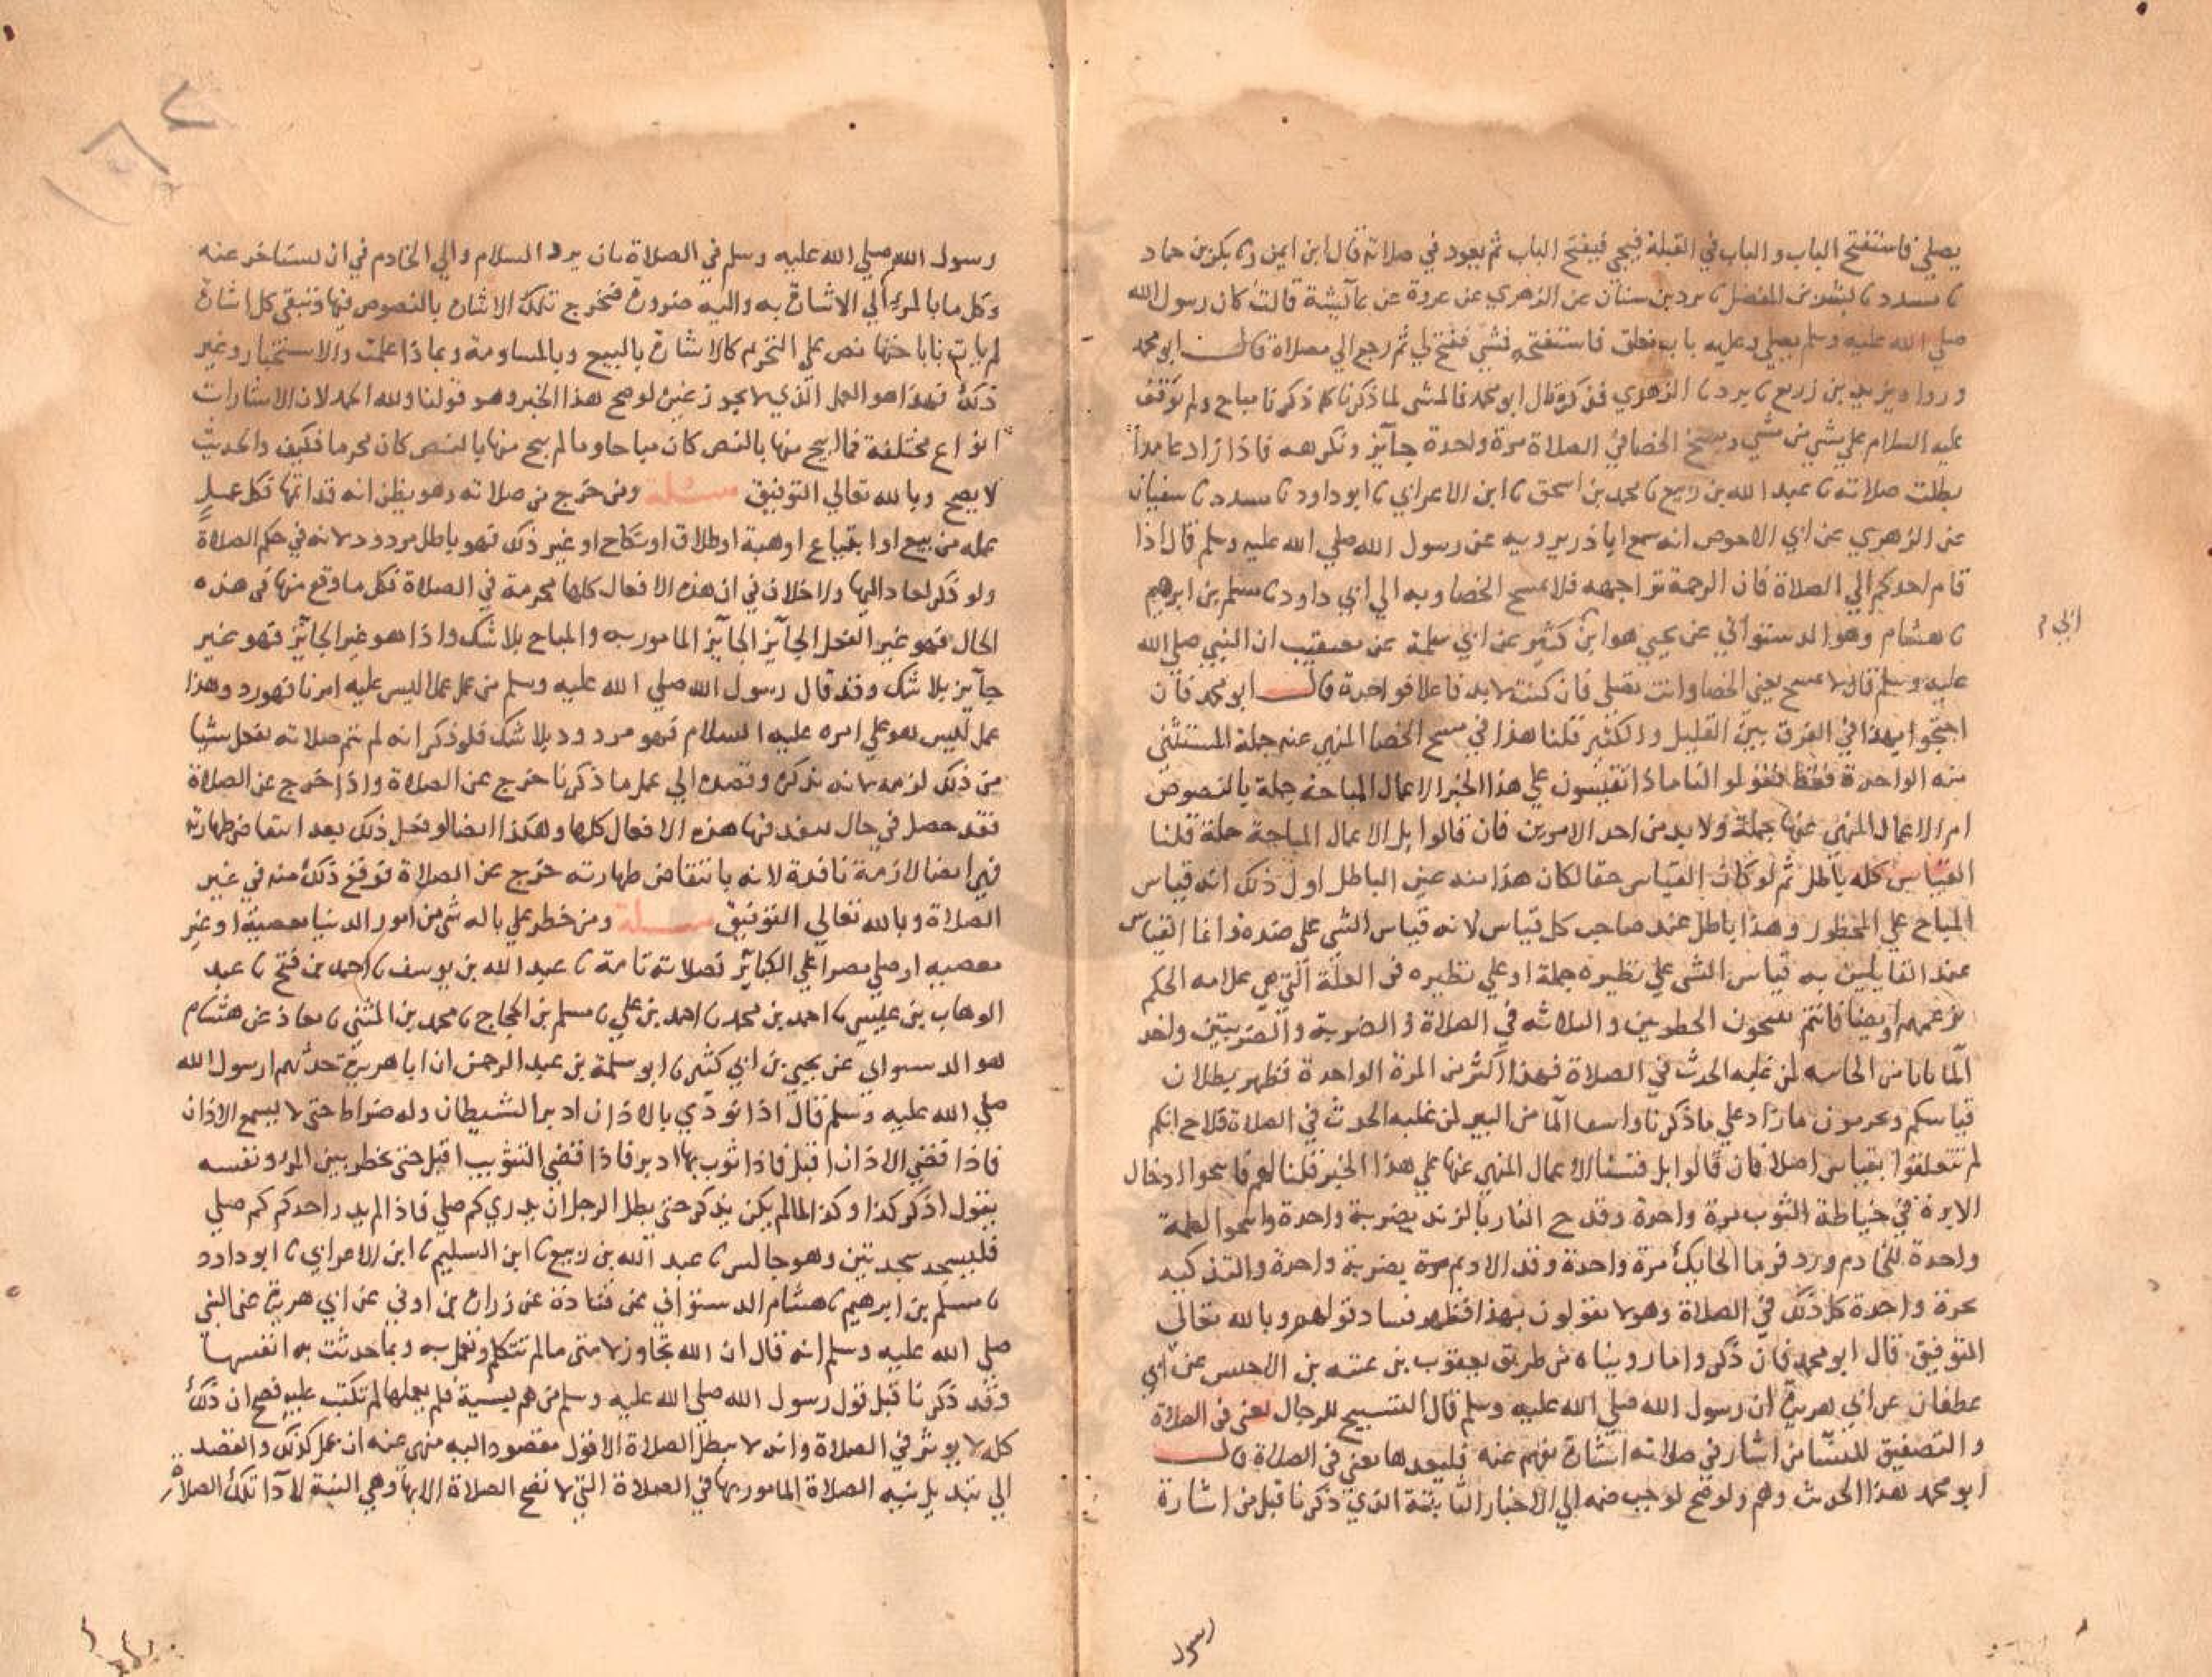 يصلي فاستفتح الباب والباب في القبلة فيجي فيفتح الباب ثم يعود في صلاته قال ابن ايمن وثنا بكر بن حماد
نا مسدد نا بشر بن المفضل نا برد بن سنان عن الزهري عن عروة عن عائشة قالت كان رسول الله
صلي الله عليه وسلم يصلي وعليه باب مغلق فاستفتحت فمشي ففتح لي ثم رجع الي مصلاه قال ابو محمد
ورواه يزيد بن زريع نا برد نا الزهري فذكره قال ابو محمد فالمشي لما ذكرنا كما ذكرنا مباح ولم يوقف
عليه السلام علي شي من مشي ومسح الحصا في الصلاة مرة واحدة جائز ونكرهه فاذا زاد عامدا
بطلت صلاته نا عبد الله بن ربيع نا محمد بن اسحق نا ابن الاعرابي نا ابو داود نا مسدد نا سفيان
عن الزهري عن ابي الاحوص انه سمع ابا ذر يرويه عن رسول الله صلي الله عليه وسلم قال اذا
قام احدكم الي الصلاة فان الرحمة تواجهه فلا يمسح الحصا وبه الي ابي داود نا مسلم بن ابرهيم
نا هشام وهو الدستوائي عن يحيي هو ابن كثير عن ابي سلمة عن معيقيب ان النبي صلي الله
ابي م
عليه وسلم قال لا تمسح يعني الحصا وانت تصلي فان كنت لا بد فاعلا فواحدة قال ابو محمد فان
احتجوا بهذا في الفرق بين القليل والكثير قلنا هذا في مسح الحصا المنهي عنه جملة المستثني
منه الواحدة فقط فقولوا لنا ماذا تقيسون علي هذا الخبر الاعمال المباحة جملة بالنصوص
ام الاعمال المنهي عنها جملة ولا بد من احد الامرين فان قالوا بل الاعمال المباحة جملة قلنا
القياس كله باطل ثم لو كان القياس حقا لكان هذا منه عين الباطل اول ذلك انه قياس
المباح علي المحظور وهذا باطل عند صاحب كل قياس لانه قياس الشي علي ضده وانما القياس
عند القايلين به قياس الشي علي نظيره جملة او علي نظيره في العلة التي هي علامه الحكم
بزعمهم وايضا فانتم تبيحون الخطوتين والثلاثه في الصلاة والضربة والضربتين واخذ
الما بانا من الخابيه لمن غلبه الحدث في الصلاة فهذا اكثر من المرة الواحدة فظهر بطلان
قياسكم وتحرمون ما زاد علي ما ذكرنا واستقا الما من البير لمن غلبه الحدث في الصلاة فلاح انكم
لم تتعلقوا بقياس اصلا فان قالوا بل قسنا الاعمال المنهي عنها علي هذا الخبر قلنا لهم فابيحوا ادخال
الابرة في خياطة الثوب مرة واحدة وقدح النار بالزند بضربة واحدة وابيحوا لطمة
واحدة للخادم ورد فرما الحايك مرة واحدة وقد الاديم مرة بضربة واحدة والتذكيه
بمرة واحدة كل ذلك في الصلاة وهم لا يقولون بهذا فظهر فساد قولهم وبالله تعالي
التوفيق قال ابو محمد فان ذكروا ما رويناه من طريق يعقوب بن عتبه بن الاخنس عن ابي
غطفان عن ابي هريرة ان رسول الله صلي الله عليه وسلم قال التسبيح للرجال يعني في الصلاة
والتصفيق للنسا من اشار في صلاته اشارة تفهم عنه فليعدها يعني في الصلاة قال
ابو محمد هذا الحديث وهم ولو صح لوجب ضمه الي الاخبار الثابتة الذي ذكرنا قبل من اشارة
رسول
رسول الله صلي الله عليه وسلم في الصلاة بان يرد السلام والي الخادم في ان تستاخر عنه
وكل ما بالمرء الي الاشارة به واليه ضرورة فتخرج تلك الاشارة بالنصوص فيها وتبقي كل اشارة
لم يات باباحتها نص علي التحريم كالاشارة بالبيع وبالمساومة وبما ذا عملت والاستخبار وغير
ذلك فهذا هو العمل الذي لا يجوز غيره لو صح هذا الخبر وهو قولنا ولله الحمد لان الاشارات
انواع مختلفة فما ابيح منها بالنص كان مباحا وما لم يبح منها بالنص كان محرما فكيف والحديث
لا يصح وبالله تعالي التوفيق مسئلة ومن خرج من صلاته وهو يظن انه قد اتمها فكل عمل
عمله من بيع او ابتياع او هبة او طلاق او نكاح او غير ذلك فهو باطل مردود لانه في حكم الصلاة
ولو ذكر لعاد اليها ولا خلاف في ان هذه الافعال كلها محرمة في الصلاة فكل ما وقع منها في هذه
الحال فهو غير الفعل الجائز الجائز المامور به والمباح بلا شك واذا هو غير الجائز فهو غير
جائز بلا شك وقد قال رسول الله صلي الله عليه وسلم من عمل عملا ليس عليه امرنا فهو رد وهذا
عمل ليس هو علي امره عليه السلام فهو مردود بلا شك فلو ذكر انه لم تتم صلاته ففعل شيا
من ذلك لزمه لانه بذكره وقصده الي عمل ما ذكرنا خرج عن الصلاة واذا خرج عن الصلاة
فقد حصل في حال تنفذ فيها هذه الافعال كلها وهكذا ايضا لو فعل ذلك بعد انتقاض طهارته
فهي ايضا لازمة نافذة لانه بانتقاض طهارته خرج عن الصلاة فوقع ذلك منه في غير
الصلاة وبالله تعالي التوفيق مسئلة ومن خطر علي باله شي من امور الدنيا معصية او غير
معصيه او صلي مصرا علي الكبائر فصلاته تامة نا عبد الله بن يوسف نا احمد بن فتح نا عبد
الوهاب بن عيسي نا احمد بن محمد نا احمد بن علي نا مسلم بن الحجاج نا محمد بن المثني نا معاذ عن هشام
هو الدستوائي عن يحيي بن ابي كثير نا ابو سلمة بن عبد الرحمن ان ابا هريرة حدثهم ان رسول الله
صلي الله عليه وسلم قال اذا نودي بالاذان ادبر الشيطان وله ضراط حتي لا يسمع الاذان
فاذا قضي الاذان اقبل فاذا ثوب بها ادبر فاذا قضي التثويب اقبل حتي يخطر بين المرء ونفسه
يقول اذكر كذا وكذا لما لم يكن يذكر حتي يظل الرجل ان يدري كم صلي فاذا لم يدر احدكم كم صلي
فليسجد سجدتين وهو جالس نا عبد الله بن ربيع نا ابن السليم نا ابن الاعرابي نا ابو داود
نا مسلم بن ابرهيم نا هشام الدستوائي عن قتادة عن زرارة بن اوفي عن ابي هريرة عن النبي
صلي الله عليه وسلم انه قال ان الله تجاوز لامتي ما لم تتكلم او تعمل به وبما حدثت به انفسها
وقد ذكرنا قبل قول رسول الله صلي الله عليه وسلم من هم بسيئة فلم يعملها لم تكتب عليه فصح ان ذلك
كله لا يوثر في الصلاة وانه لا يبطل الصلاة الا قول مقصود اليه منهي عنه او عمل كذلك والقصد
الي تبديل نيه الصلاة المامور بها في الصلاة التي لا تصح الصلاة الا بها وهي النية لادا تلك الصلاة